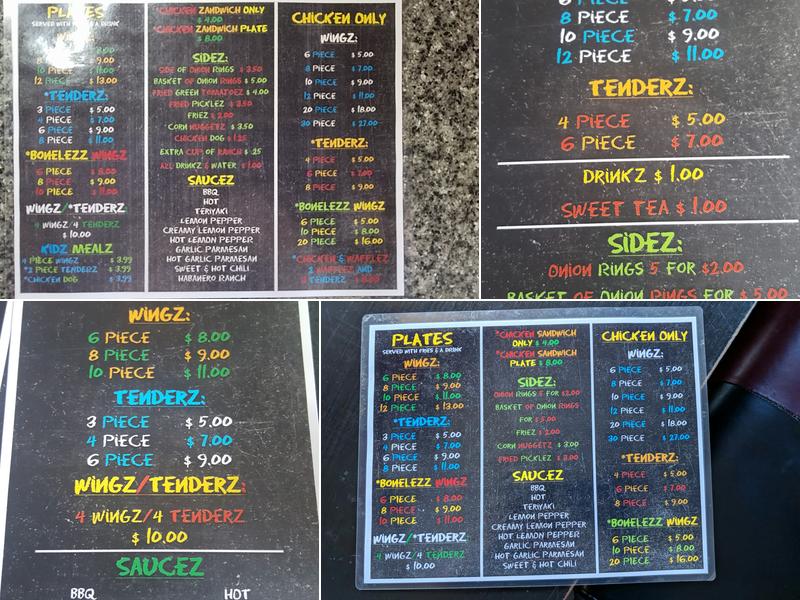 PLATES
SERVED WITH & A DRINK
WINGZ:
8 PIECE $ 9.00
10 PIECE $ 11.00
12 PIECE $ 13.00
*TENDERZ:
3 PIECE $ 5.00
4 PIECE $ 7.00
6 PIECE $ 9.00
8 PIECE $ 11.00
*BONELEZZ WINGZ
6 PIECE $ 8.00
8 PIECE $ 9.00
10 PIECE $ 11.00
WINGZ/*TENDERZ
4 WINGZ/4 TENDERZ
$ 10.00
KIDZ MEALZ
4 PIECE WINGZ $ 3.99
*2 PIECE TENDERZ $ 3.99
*CHICKEN DOG $ 3.99
*CHICKEN ZANDWICH ONLY
$ 4.00
*CHICKEN ZANDWICH PLATE
$ 8.00
SIDEZ:
SIDE OF ONION RINGS $ 3.50
BASKET OF ONION RINGS $ 5.00
FRIED GREEN TOMATOEZ $ 4.00
FRIED PICKLEZ $ 3.50
FRIEZ $ 2.00
*CORN NUGGETZ $ 3.50
CHICKEN DOG $ 1.25
EXTRA CUP OF RANCH $ .25
ALL DRINKZ & WATER $ 1.00
SAUCEZ
BBQ
HOT
TERIYAKI
LEMON PEPPER
CREAMY LEMON PEPPER
HOT LEMON PEPPER
GARLIC PARMESAN
HOT GARLIC PARMESAN
SWEET & HOT CHILI
HABANERO RANCH
CHICKEN ONLY
WINGZ:
6 PIECE $ 5.00
8 PIECE $ 7.00
10 PIECE $ 9.00
12 PIECE $ 11.00
20 PIECE $ 18.00
30 PIECE $ 27.00
*TENDERZ:
4 PIECE $ 5.00
6 PIECE $ 7.00
8 PIECE $ 9.00
*BONELEZZ WINGZ
6 PIECE $ 5.00
10 PIECE $ 8.00
20 PIECE $ 16.00
*CHICKEN & WAFFLEZ
2 WAFFLEZ AND
3 TENDERZ $ 8.00
8 PIECE $ 7.00
10 PIECE $ 9.00
12 PIECE $ 11.00
TENDERZ:
4 PIECE $ 5.00
6 PIECE $ 7.00
DRINKZ $ 1.00
SWEET TEA $ 1.00
SIDEZ:
ONION RINGS 5 FOR $2.00
BASKET OF ONION RINGS FOR $ 5.00
WINGZ:
6 PIECE $ 8.00
8 PIECE $ 9.00
10 PIECE $ 11.00
TENDERZ:
3 PIECE $ 5.00
4 PIECE $ 7.00
6 PIECE $ 9.00
WINGZ/TENDERZ:
4 WINGZ/4 TENDERZ
$ 10.00
SAUCEZ
BBQ HOT
PLATES
SERVED WITH FRIES & A DRINK
WINGZ:
6 PIECE $ 8.00
8 PIECE $ 9.00
10 PIECE $ 11.00
12 PIECE $ 13.00
*TENDERZ:
3 PIECE $ 5.00
4 PIECE $ 7.00
6 PIECE $ 9.00
8 PIECE $ 11.00
*BONELEZZ WINGZ
6 PIECE $ 8.00
8 PIECE $ 9.00
10 PIECE $ 11.00
WINGZ/*TENDERZ
4 WINGZ/4 TENDERZ
$ 10.00
*CHICKEN SANDWICH
ONLY $ 4.00
*CHICKEN SANDWICH
PLATE $ 8.00
SIDEZ:
ONION RINGS 5 FOR $2.00
BASKET OF ONION RINGS
FOR $ 5.00
FRIEZ $ 2.00
CORN NUGGETZ $ 3.00
FRIED PICKLEZ $ 3.00
SAUCEZ
BBQ
HOT
TERIYAKI
LEMON PEPPER
CREAMY LEMON PEPPER
HOT LEMON PEPPER
GARLIC PARMESAN
HOT GARLIC PARMESAN
SWEET & HOT CHILI
CHICKEN ONLY
WINGZ:
6 PIECE $ 5.00
8 PIECE $ 7.00
10 PIECE $ 9.00
12 PIECE $ 11.00
20 PIECE $ 18.00
30 PIECE $ 27.00
*TENDERZ:
4 PIECE $ 5.00
6 PIECE $ 7.00
8 PIECE $ 9.00
*BONELEZZ WINGZ
6 PIECE $ 5.00
10 PIECE $ 8.00
20 PIECE $ 16.00